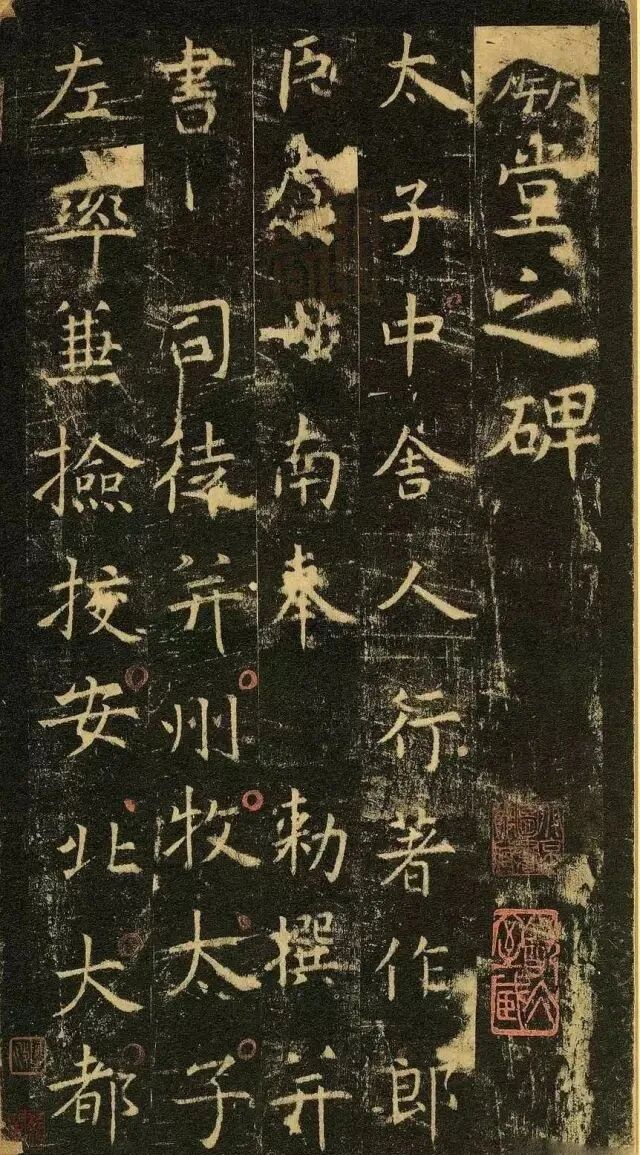 堂之碑
太子中舍人行著作郎
臣虞世南奉　勅撰并
書　司徒并州牧太子
左率兼撿挍安北大都